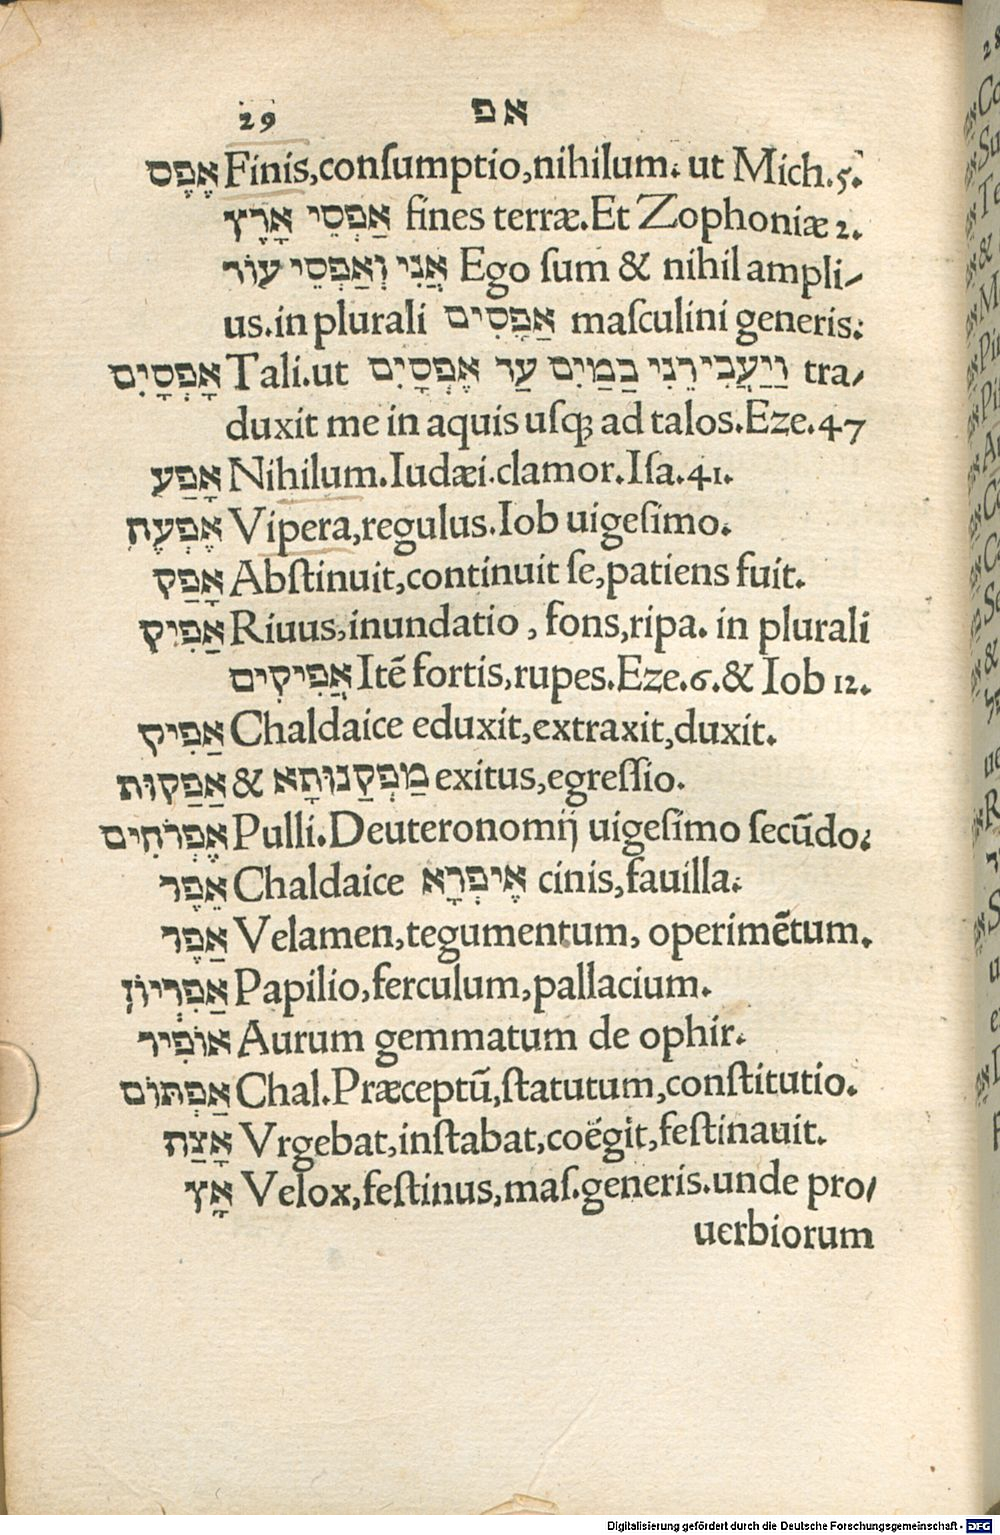 29 אפ
אֶפֶס Finis,conſumptio,nihilum. ut Mich.5.
אַפְסֵי אָרֶץ fines terræ.Et Zophoniæ 2.
אֲנִי וְאַפְסֵי עוֹד Ego ſum & nihil ampli/
us.in plurali אַפְסִים maſculini generis.
אָפְסָיִם Tali.ut וַיַעֲבִירֵנִי בַמַיִם עַד אֶפְסָיִם tra/
duxit me in aquis uſqꝫ ad talos.Eze.47
אָפַע Nihilum.Iudæi.clamor.Iſa.41.
אֶפְעֶה Vipera,regulus.Iob uigeſimo.
אָפַק Abſtinuit,continuit ſe,patiens fuit.
אַפִיק Riuus,inundatio , fons,ripa. in plurali
אֲפִיקִים Itē fortis,rupes.Eze.6.& Iob 12.
אַפִיק Chaldaice eduxit,extraxit,duxit.
אַפַקוּת & מַפְקַנוּתָא exitus,egreſſio.
אֶפְרֹחִים Pulli.Deuteronomij uigeſimo ſecūdo.
אֵפֶר Chaldaice אֶיפְרָא cinis,fauilla.
אַפֶר Velamen,tegumentum, operimētum.
אַפִרְיוֹן Papilio,ferculum,pallacium.
אוֹפִיר Aurum gemmatum de ophir.
אַפְתּוֹם Chal.Præceptū,ſtatutum,conſtitutio.
אָצַח Vrgebat,inſtabat,coëgit,feſtinauit.
אָץ Velox,feſtinus,maſ.generis.unde pro/
uerbiorum
Digitalisierung gefördert durch die Deutsche Forschungsgemeinschaft - DFG